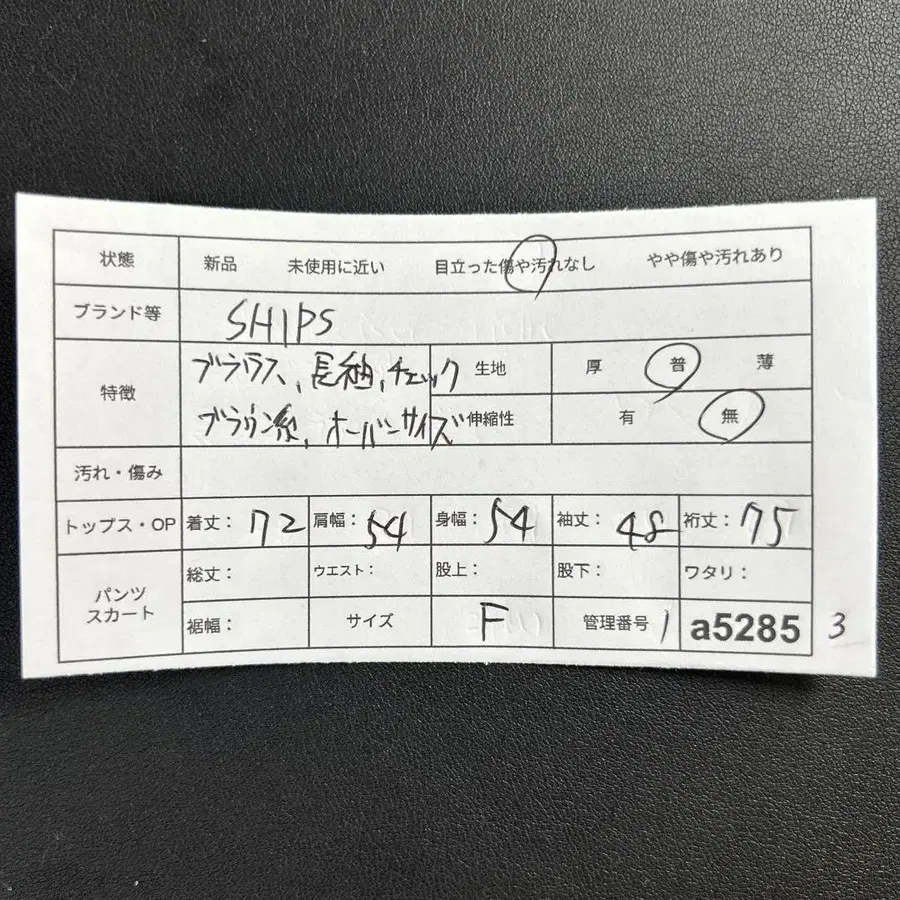 状態 新品 未使用に近い 目立った傷や汚れなし やや傷や汚れあり
ブランド等 SHIPS
特徴 ブラウス、長袖、チェック 生地 厚 普 薄
ブラウン系、オーバーサイズ 伸縮性 有 無
汚れ・傷み
トップス・OP 着丈: 72 肩幅: 54 身幅: 54 袖丈: 48 裄丈: 75
パンツ スカート 総丈: ウエスト: 股上: 股下: ワタリ:
裾幅: サイズ F 管理番号 1 a5285 3